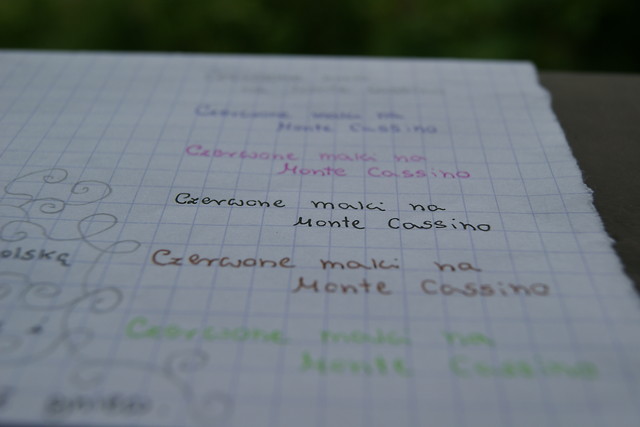 Czerwone maki na
Monte Cassino
Czerwone maki na
Monte Cassino
Czerwone maki na
Monte Cassino
Czerwone maki na
Monte Cassino
olską
Czerwone maki na
Monte Cassino